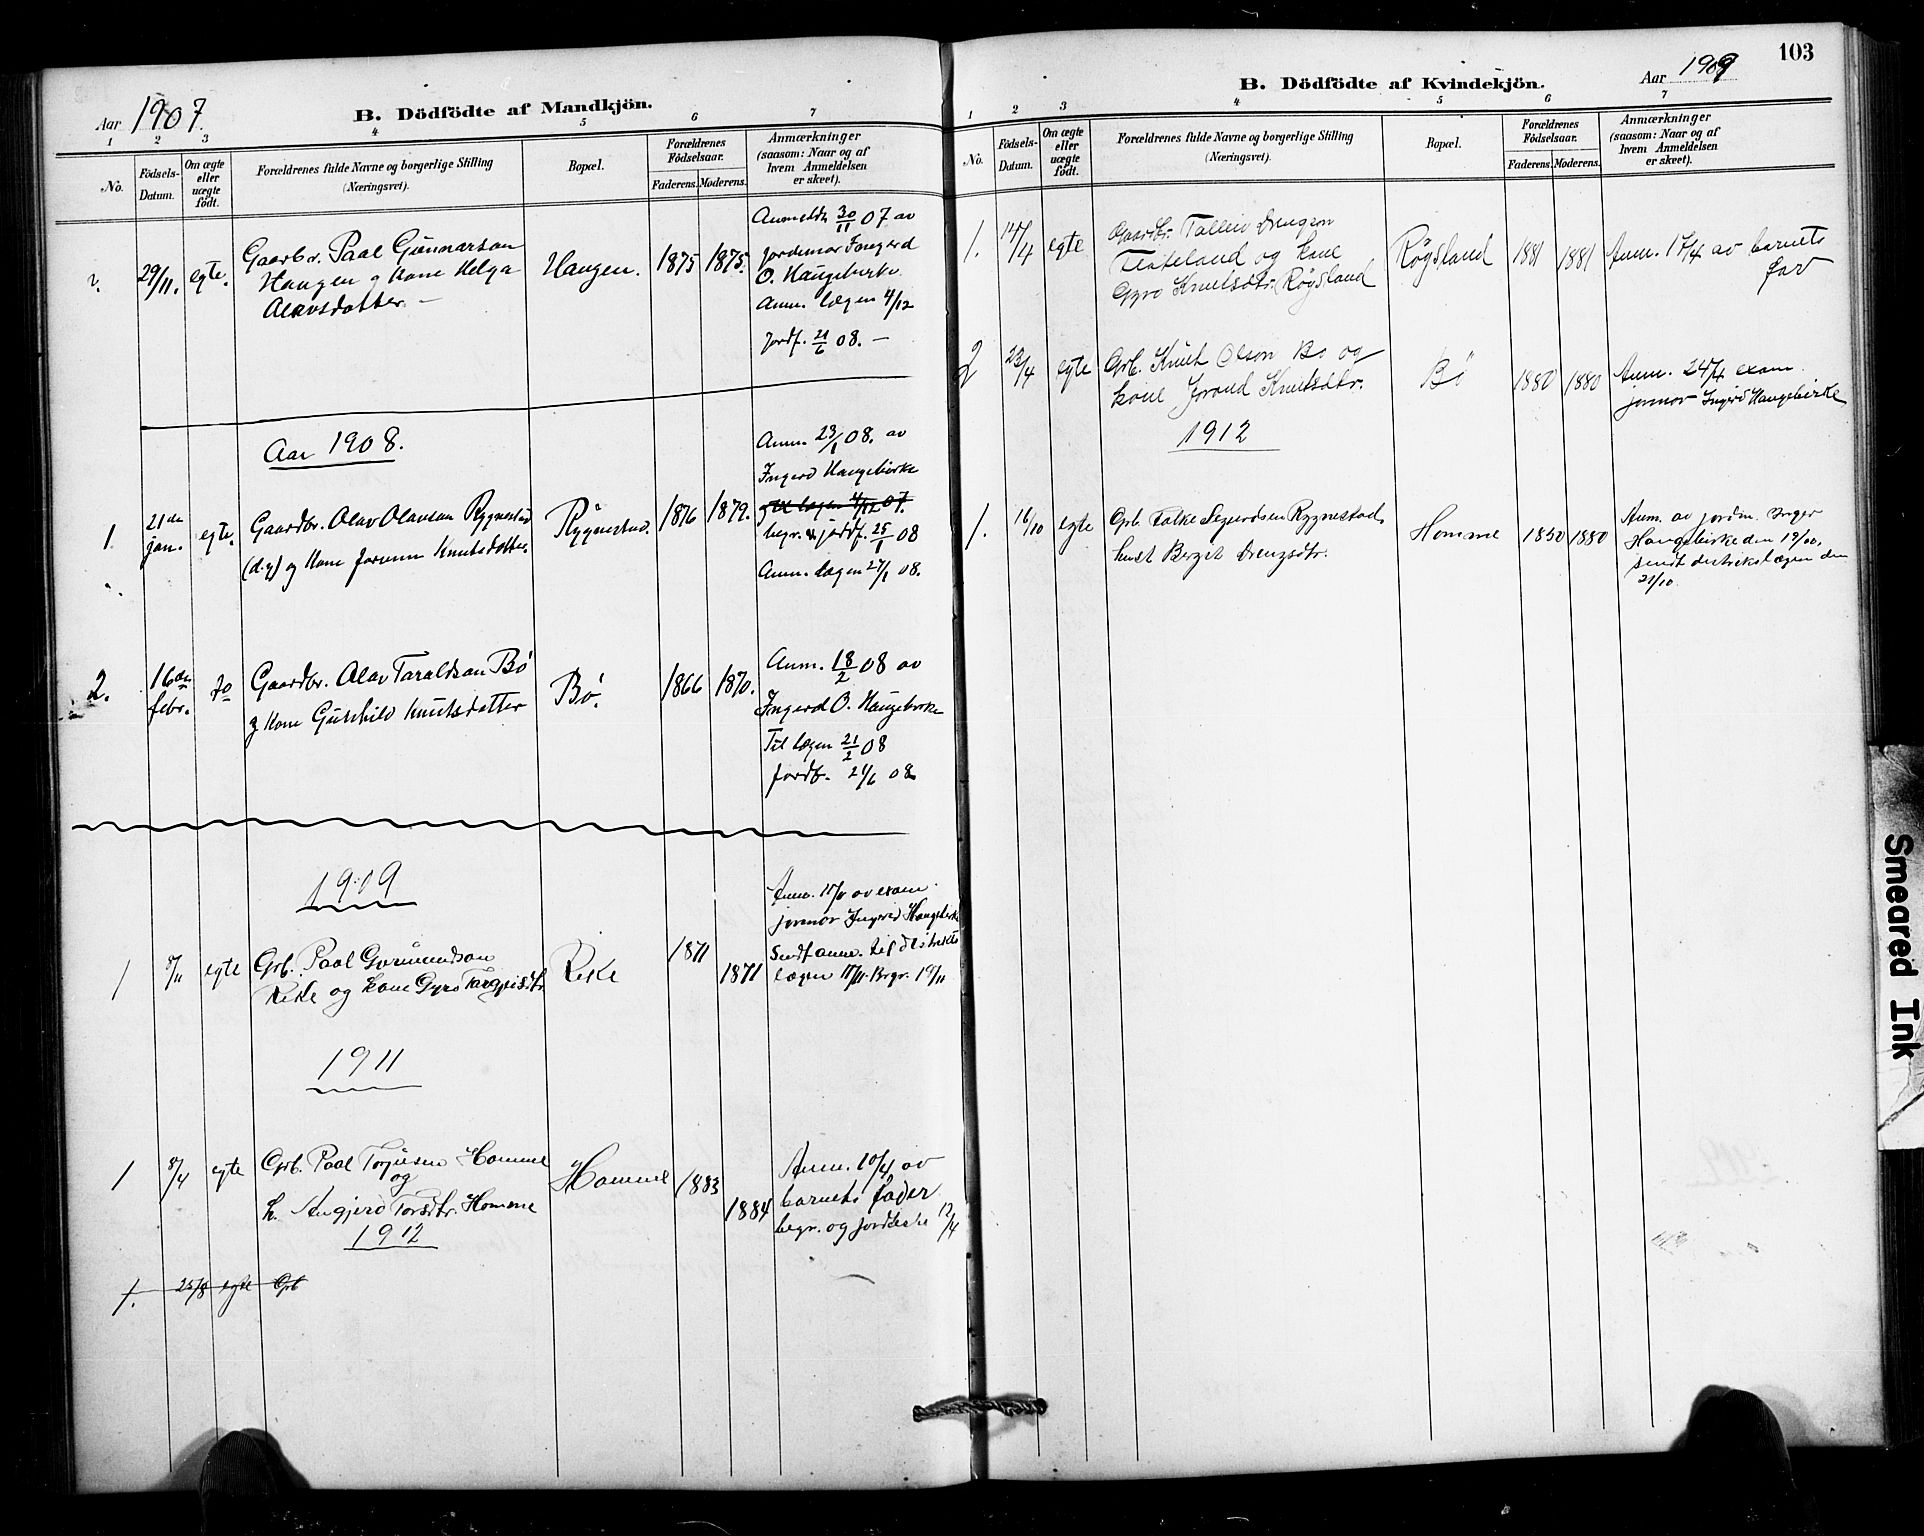 Aar 1907.
B. Dödfödte af Mandkjön.
1 2 3 4 5 6 7
No.
Födsels-
Datum.
Om ægte
eller
uægte
födt.
Forældrenes fulde Navne og borgerlige Stilling
(Næringsvei).
Bopæl.
Forældrenes
Födselsaar.
Faderens. Moderens.
Anmærkninger
(saasom: Naar og af
hvem Anmeldelsen
er skeet).
29/11. egte.
Gaardbr. Paal Gunnarson
Haugen & Kone Helga
Olavsdatter. —
Haugen. 1875 1875.
Anmeldt 30/11 07 av
Jordemor Ingerd
O. Haugebirke.
Anm. lægen 4/12
Jordf. 21/6 08. —
Aar 1908.
1. 21de jan. egte.
Gaardbr. Olav Olavson Rygnestad
(d.y) og Kone Joraand Knutsdatter.
Rygnestad. 1876 1879.
Anm. 23/1 08. av
Ingerd Haugebirke
til lægen 4/12 07.
begr. & jordf. 25/1 08
Anm. Lægen 27/1 08.
2. 16de febr. Do
Gaardbr. Olav Taraldson Bö
& Kone Gunhild Knutsdatter
Bö. 1866 1870.
Anm. 18/2 08 av
Ingerd O. Haugebirke
Til Lægen 21/2 08
Jordf. 21/6 08
1909
1 8/11 egte
Grb. Paal Gunnundson
Rike og kone Gyro Targeisdtr.
Rike 1871 1871
Anm. 11/11 av exam.
jormor Ingerd Haugebirke
Sendt anm. til distrikts
lægen 11/11. Begr. 19/11
1911
1 8/4 egte
Grb. Paal Torjusen Homme
og
k. Angjerd Torsdtr. Homme
Homme 1883 1884
Anm. 10/4 av
barnets fader
begr. og jordfeste 12/4
1912
1. 25/8 egte Grb
103
B. Dödfödte af Kvindekjön.
Aar 1909
1 2 3 4 5 6 7
No.
Födsels-
Datum.
Om ægte
eller
uægte
födt.
Forældrenes fulde Navne og borgerlige Stilling
(Næringsvei).
Bopæl.
Forældrenes
Födselsaar.
Faderens. Moderens.
Anmærkninger
(saasom: Naar og af
hvem Anmeldelsen
er skeet).
1. 12/4 egte
Gaardbr. Talleiv Drengson
Flateland og kone
Gyro Knutsdtr. Røgsland
Røgsland 1881 1881
Anm. 17/4 av barnets
far
2 23/4 egte
Grb. Knut Olson Bö og
kone Joraud Knutsdtr.
Bö 1880 1880
Anm. 24/4 exam.
jormor Ingerd Haugebirke
1912
1. 16/10 egte
Grb. Folke Sigurdsen Rygnestad,
hust Berget Drengsdtr.
Homme 1850 1880
Anm. av jordm. Inger
Haugebirke den 19/10,
sendt distriktslægen den
21/10.
Smeared Ink